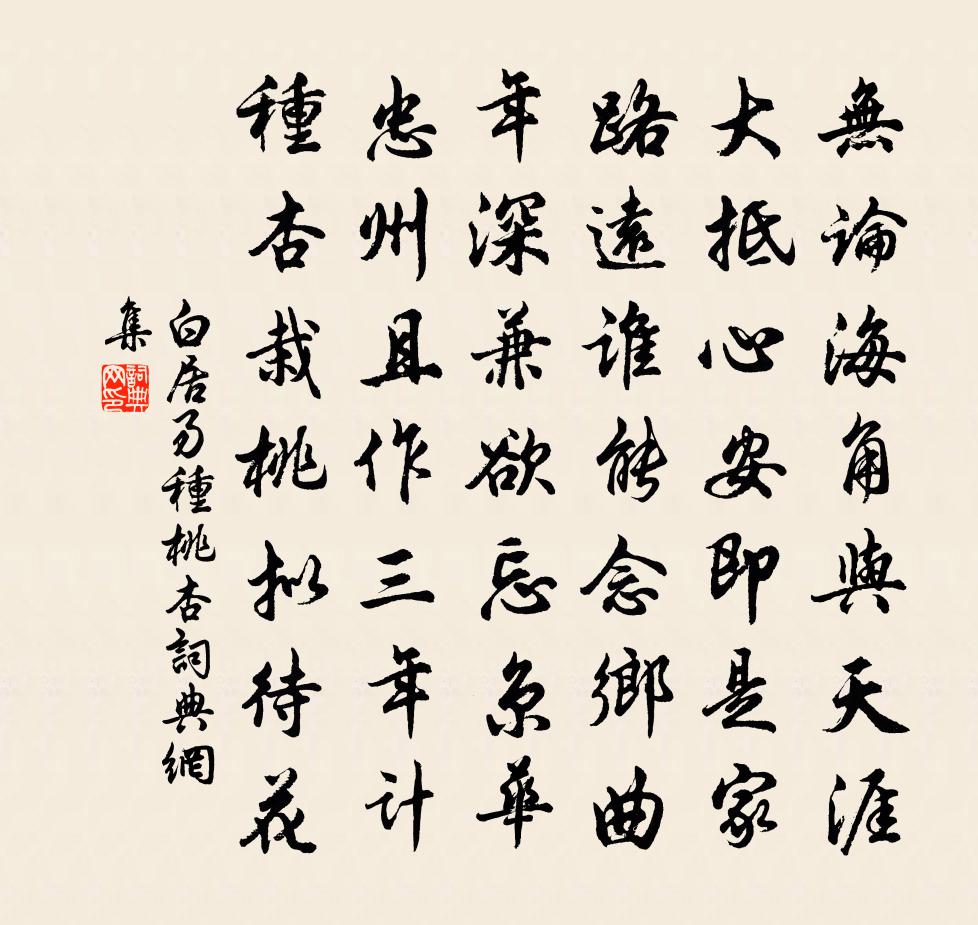 無論海角與天涯
大抵心安即是家
路遠誰能念鄉曲
年深兼欲忘京華
忠州且作三年計
種杏栽桃拟待花
白居易種桃杏詞典網
集
詞典網印